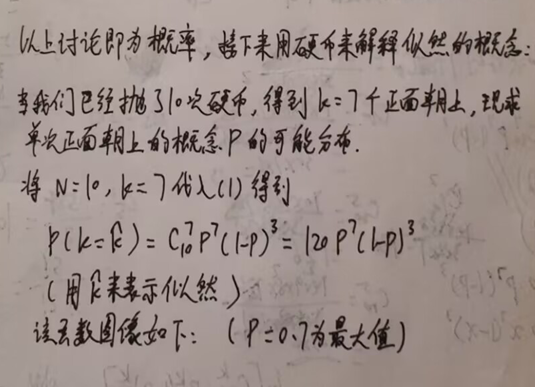 以上讨论即为概率，接下来用硬币来解释似然的概念：
当我们已经抛了10次硬币，得到k=7个正面朝上，现求
单次正面朝上的概念P的可能分布.
将 N=10, k=7代入(1)得到
P(k=k̂) = C₁₀⁷P⁷(1-P)³ = 120 P⁷(1-P)³
(用k̂来表示似然)
该函数图像如下：(P=0.7为最大值)